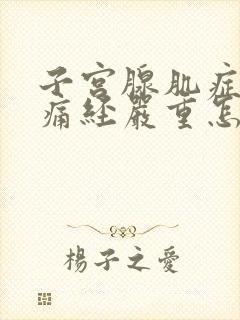 子宫腺肌症
痛经严重怎
楊子之愛